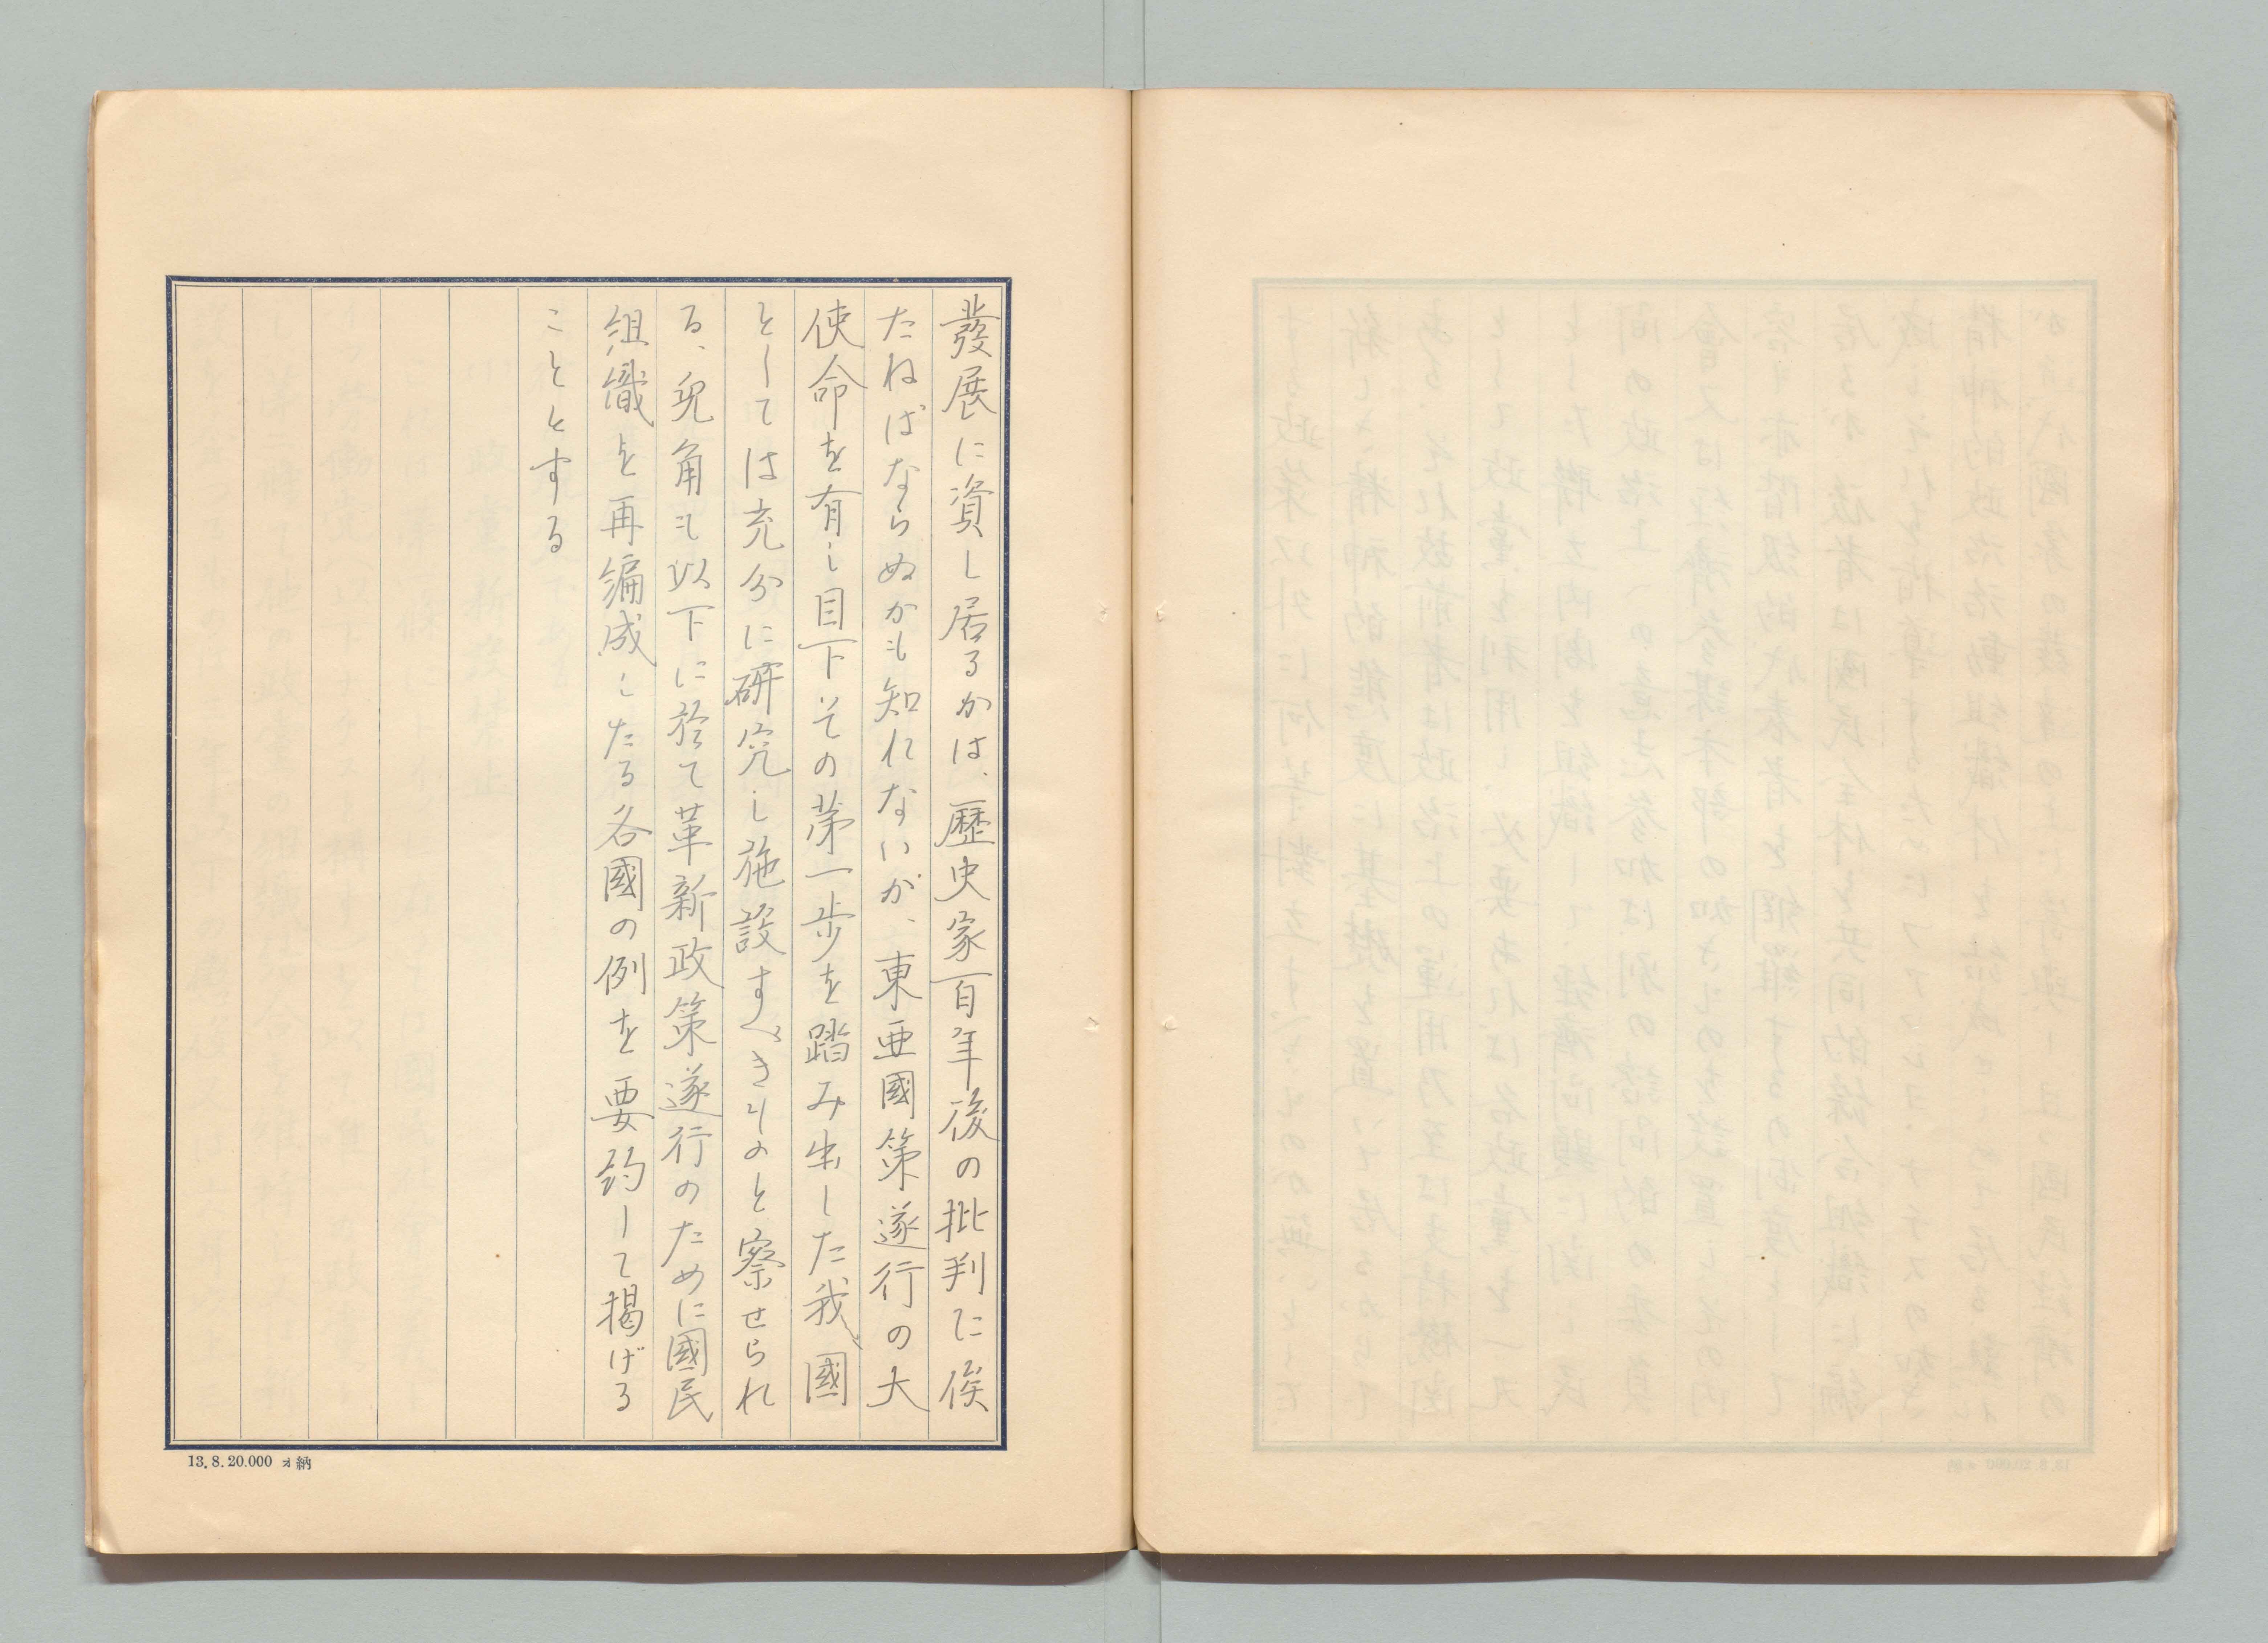 發展に資し居るかは、歷史家百年後の批判に俟
たねばならぬかも知れないが、東亜國策遂行の大
使命を有し目下その第一歩を踏み出した我國
としては充分に研究し施設すべきものと察せられ
る、兎角も以下に於て革新政策遂行のために國民
組織を再編成したる各國の例を要約して掲げる
こととする
13.8.20.000 ォ納